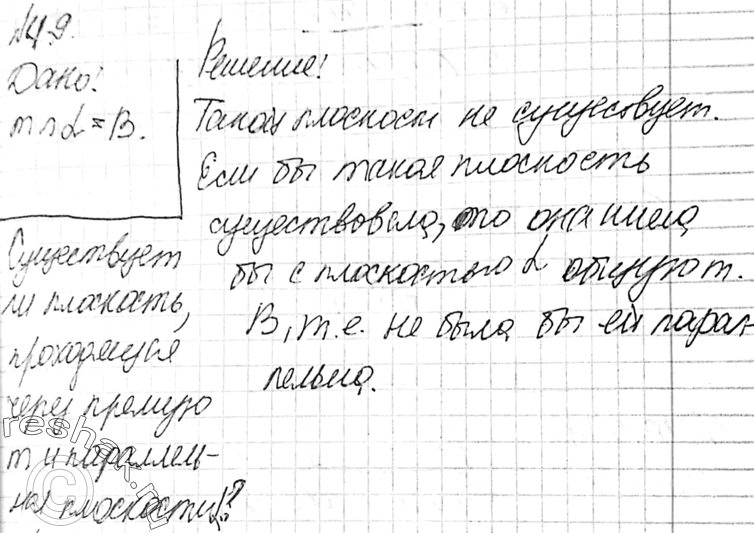 №49.
Дано:
m∩α=B.
Существует
ли плоскость,
проходящая
через прямую
m и параллель-
ная плоскости α?
Решение:
Такой плоскости не существует.
Если бы такая плоскость
существовала, то она имела
бы с плоскостью α общую т.
B, т.е. не была бы ей парал-
лельна.
reshak.ru